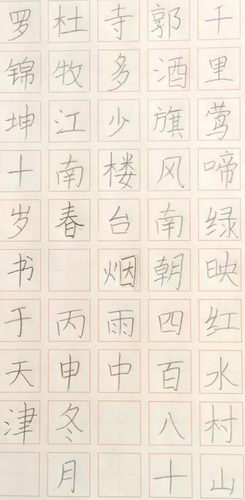 千里莺啼绿映红水村山
郭酒旗风南朝四百八十
寺多少楼台烟雨中
杜牧江南春 丙申冬月
罗锦坤十岁书于天津